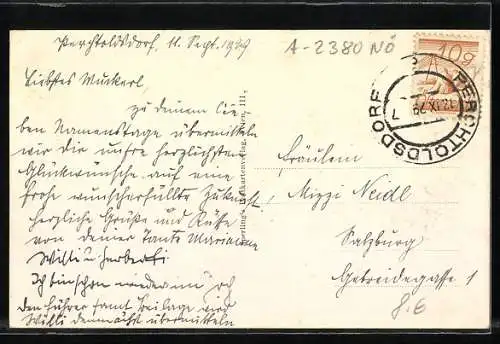 Perchtoldsdorf, 11. Sept. 1929
A-2380 NÖ
10g
PERCHTOLDSDORF
12.IX.29
7
Liebstes Muckerl,
zu deinem lie
ben Namenstage übermitteln
wir dir unsre herzlichsten
Glückwünsche auf eine
frohe wunscherfüllte Zukunft
herzliche Grüße und Küsse
von deiner Tante Marianne
Willi u. Herberti
Ich bin schon wieder
den Führer samt Beilage wird
Willi demnächst übermitteln
Postkartenverlag, Wien, III.
Fräulein
Mizzi Neidl
Salzburg
Getreidegasse 1
8.E